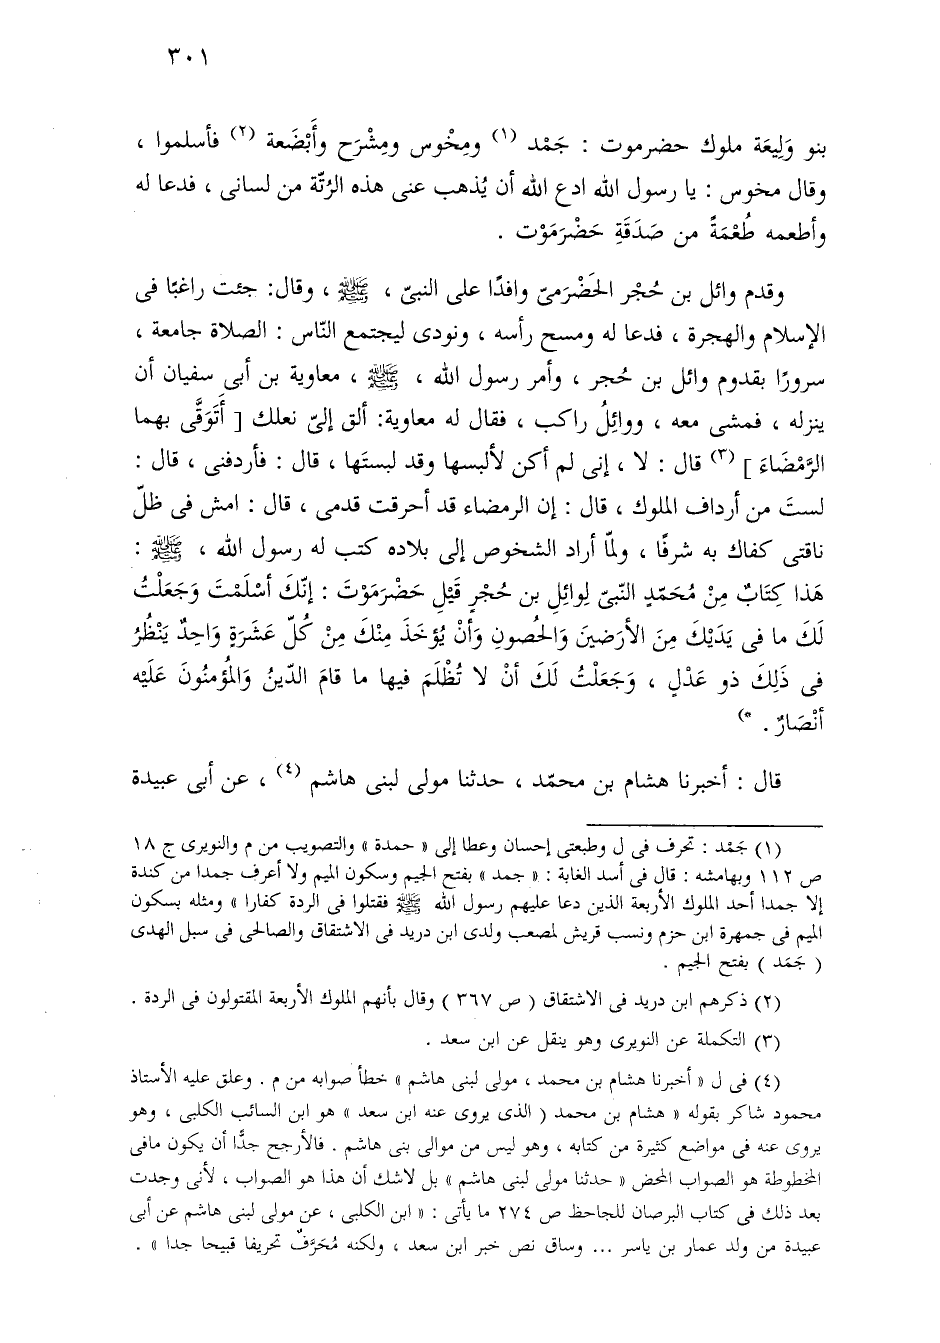 ٣٠١
بنو وَلِيعَة ملوك حضرموت : جَمْد (١) ومِخْوس ومِشْرَح وأَبْضَعة (٢) فأسلموا ،
وقال مخوس : يا رسول الله ادع الله أن يُذهب عنى هذه الرُتّة من لسانى ، فدعا له
وأطعمه طُعْمَةً من صَدَقَةِ حَضْرَمَوْت .
وقدم وائل بن حُجْر الحَضْرَمىّ وافدًا على النبىّ ، ﷺ ، وقال: جئت راغبًا فى
الإسلام والهجرة ، فدعا له ومسح رأسه ، ونودى ليجتمع النّاس : الصلاة جامعة ،
سرورًا بقدوم وائل بن حُجر ، وأمر رسول الله ، ﷺ ، معاوية بن أبى سفيان أن
ينزله ، فمشى معه ، ووائلُ راكب ، فقال له معاوية: ألق إلىّ نعلك [ أَتَوَقَّى بهما
الرَّمْضَاءَ ] (٣) قال : لا ، إنى لم أكن لألبسها وقد لبستَها ، قال : فأردفنى ، قال :
لستَ من أرداف الملوك ، قال : إن الرمضاء قد أحرقت قدمى ، قال : امش فى ظلّ
ناقتى كفاك به شرفًا ، ولمّا أراد الشخوص إلى بلاده كتب له رسول الله ، ﷺ :
هَذا كِتابٌ مِنْ مُحَمّدٍ النّبىّ لِوائلِ بن حُجْرٍ قَيْلِ حَضْرَمَوْتَ : إنّكَ أسْلَمْتَ وَجَعَلْتُ
لَكَ ما فى يَدَيْكَ مِنَ الأرَضينَ وَالحُصونِ وَأنْ يُؤخَذَ مِنْكَ مِنْ كُلّ عَشَرَةٍ وَاحِدٌ يَنْظُرُ
فى ذَلِكَ ذو عَدْلٍ ، وَجَعَلْتُ لَكَ أنْ لا تُظْلَمَ فيها ما قامَ الدّينُ وَالمُؤمنُونَ عَلَيْه
أنْصَارٌ . *)
قال : أخبرنا هشام بن محمّد ، حدثنا مولى لبنى هاشم (٤) ، عن أبى عبيدة
(١) جَمْد : تحرف فى ل وطبعتى إحسان وعطا إلى « حمدة » والتصويب من م والنويرى ج ١٨
ص ١١٢ وبهامشه : قال فى أسد الغابة : « جمد » بفتح الجيم وسكون الميم ولا أعرف جمدا من كندة
إلا جمدا أحد الملوك الأربعة الذين دعا عليهم رسول الله ﷺ فقتلوا فى الردة كفارا » ومثله بسكون
الميم فى جمهرة ابن حزم ونسب قريش لمصعب ولدى ابن دريد فى الاشتقاق والصالحى فى سبل الهدى
( جَمَد ) بفتح الجيم .
(٢) ذكرهم ابن دريد فى الاشتقاق ( ص ٣٦٧ ) وقال بأنهم الملوك الأربعة المقتولون فى الردة .
(٣) التكملة عن النويرى وهو ينقل عن ابن سعد .
(٤) فى ل « أخبرنا هشام بن محمد ، مولى لبنى هاشم » خطأ صوابه من م . وعلق عليه الأستاذ
محمود شاكر بقوله « هشام بن محمد ( الذى يروى عنه ابن سعد » هو ابن السائب الكلبى ، وهو
يروى عنه فى مواضع كثيرة من كتابه ، وهو ليس من موالى بنى هاشم . فالأرجح جدًّا أن يكون مافى
المخطوطة هو الصواب المحض « حدثنا مولى لبنى هاشم » بل لاشك أن هذا هو الصواب ، لأنى وجدت
بعد ذلك فى كتاب البرصان للجاحظ ص ٢٧٤ ما يأتى : « ابن الكلبى ، عن مولى لبنى هاشم عن أبى
عبيدة من ولد عمار بن ياسر ... وساق نص خبر ابن سعد ، ولكنه مُحَرَّفٌ تحريفا قبيحا جدا » .